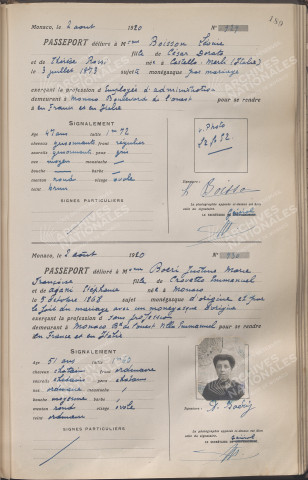 Monaco, le 2 août 1920 N° 929
PASSEPORT délivré à Mme Boisson Irène
fille de César Dorato
et de Thérèse Rossi né à Castello-Merli (Italie)
le 3 juillet 1873 sujette monégasque par mariage
exerçant la profession d'employée d'administration
demeurant à Monaco Boulevard de l'ouest pour se rendre
en France et en Italie
SIGNALEMENT
âgé 47 ans taille 1m 52
cheveux grisonnants front régulier
sourcils grisonnants yeux gris
nez moyen moustache
bouche barbe
menton rond visage ovale
teint brun
SIGNES PARTICULIERS
Photo
Boisso
La photographie apposée ci-dessus est bien
celle du signataire.
Le secrétaire général
Monaco, le 2 août 1920 N° 930
PASSEPORT délivré à Mme Boéri Justine Marie
Françoise fille de Crovetto Emmanuel
et de Agathe Stéphanie née à Monaco
le 8 octobre 1868 sujette monégasque d'origine et par
le fait du mariage avec un monégasque d'origine
exerçant la profession d sans profession
demeurant à Monaco Bd de l'ouest Villa Emmanuel
en France et en Italie
SIGNALEMENT
âgé 51 ans taille 1m 53
cheveux châtain front ordinaire
sourcils châtains yeux châtains
nez ordinaire moustache
bouche moyenne barbe
menton rond visage ovale
teint ordinaire
SIGNES PARTICULIERS
Boéri
La photographie apposée ci-dessus est bien
celle du signataire.
Le secrétaire général